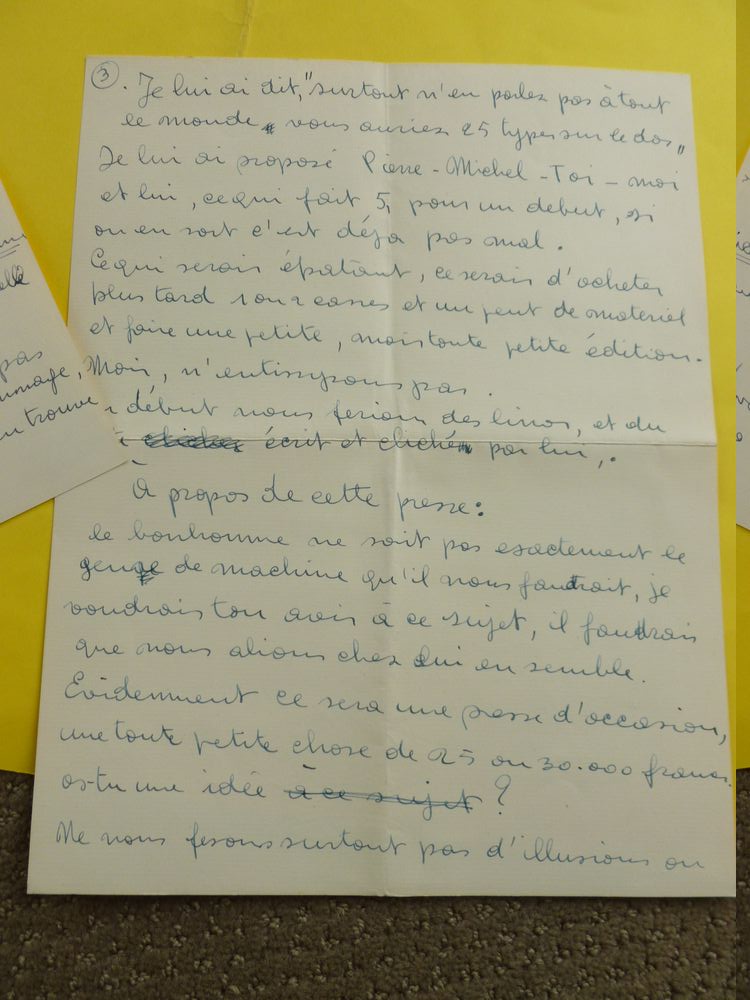 ③. Je lui ai dit, "surtout n'en parlez pas à tout
le monde, vous auriez 25 types sur le dos"
Je lui ai proposé Pierre - Michel - Toi - moi
et lui, ce qui fait 5, pour un debut, si
on en sort c'est déja pas mal.
Ce qui serais épatant, ce serais d'acheter
plus tard 1 ou 2 casses et un peut de materiel
et faire une petite, mais toute petite édition.
Mais, n'entissypons pas.
début nous ferions des linos, et du
écrit et cliché par lui,.
À propos de cette presse:
le bonhomme ne sait pas exactement le
genre de machine qu'il nous faudrait, je
voudrais ton avis à ce sujet, il faudrais
que nous alions chez lui en semble.
Evidemment ce sera une presse d'occasion,
une toute petite chose de 25 ou 30.000 francs.
as-tu une idée à ce sujet ?
Ne nous fesons surtout pas d'illusions on
elle
pas
mmage,
trouve